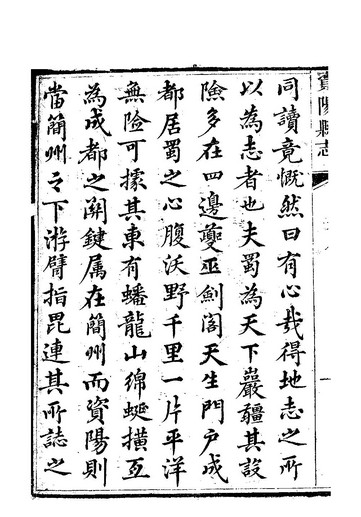 資陽縣志
同讀竟慨然曰有心㦲得地志之所
以為志者也夫蜀為天下巖疆其設
險多在四邊夔巫劍閣天生門户成
都居蜀之心腹沃野千里一片平洋
無險可據其東有蟠龍山綿蜒撗亙
為成都之関鍵属在簡州而資陽則
當簡州之下游臂指毘連其所誌之